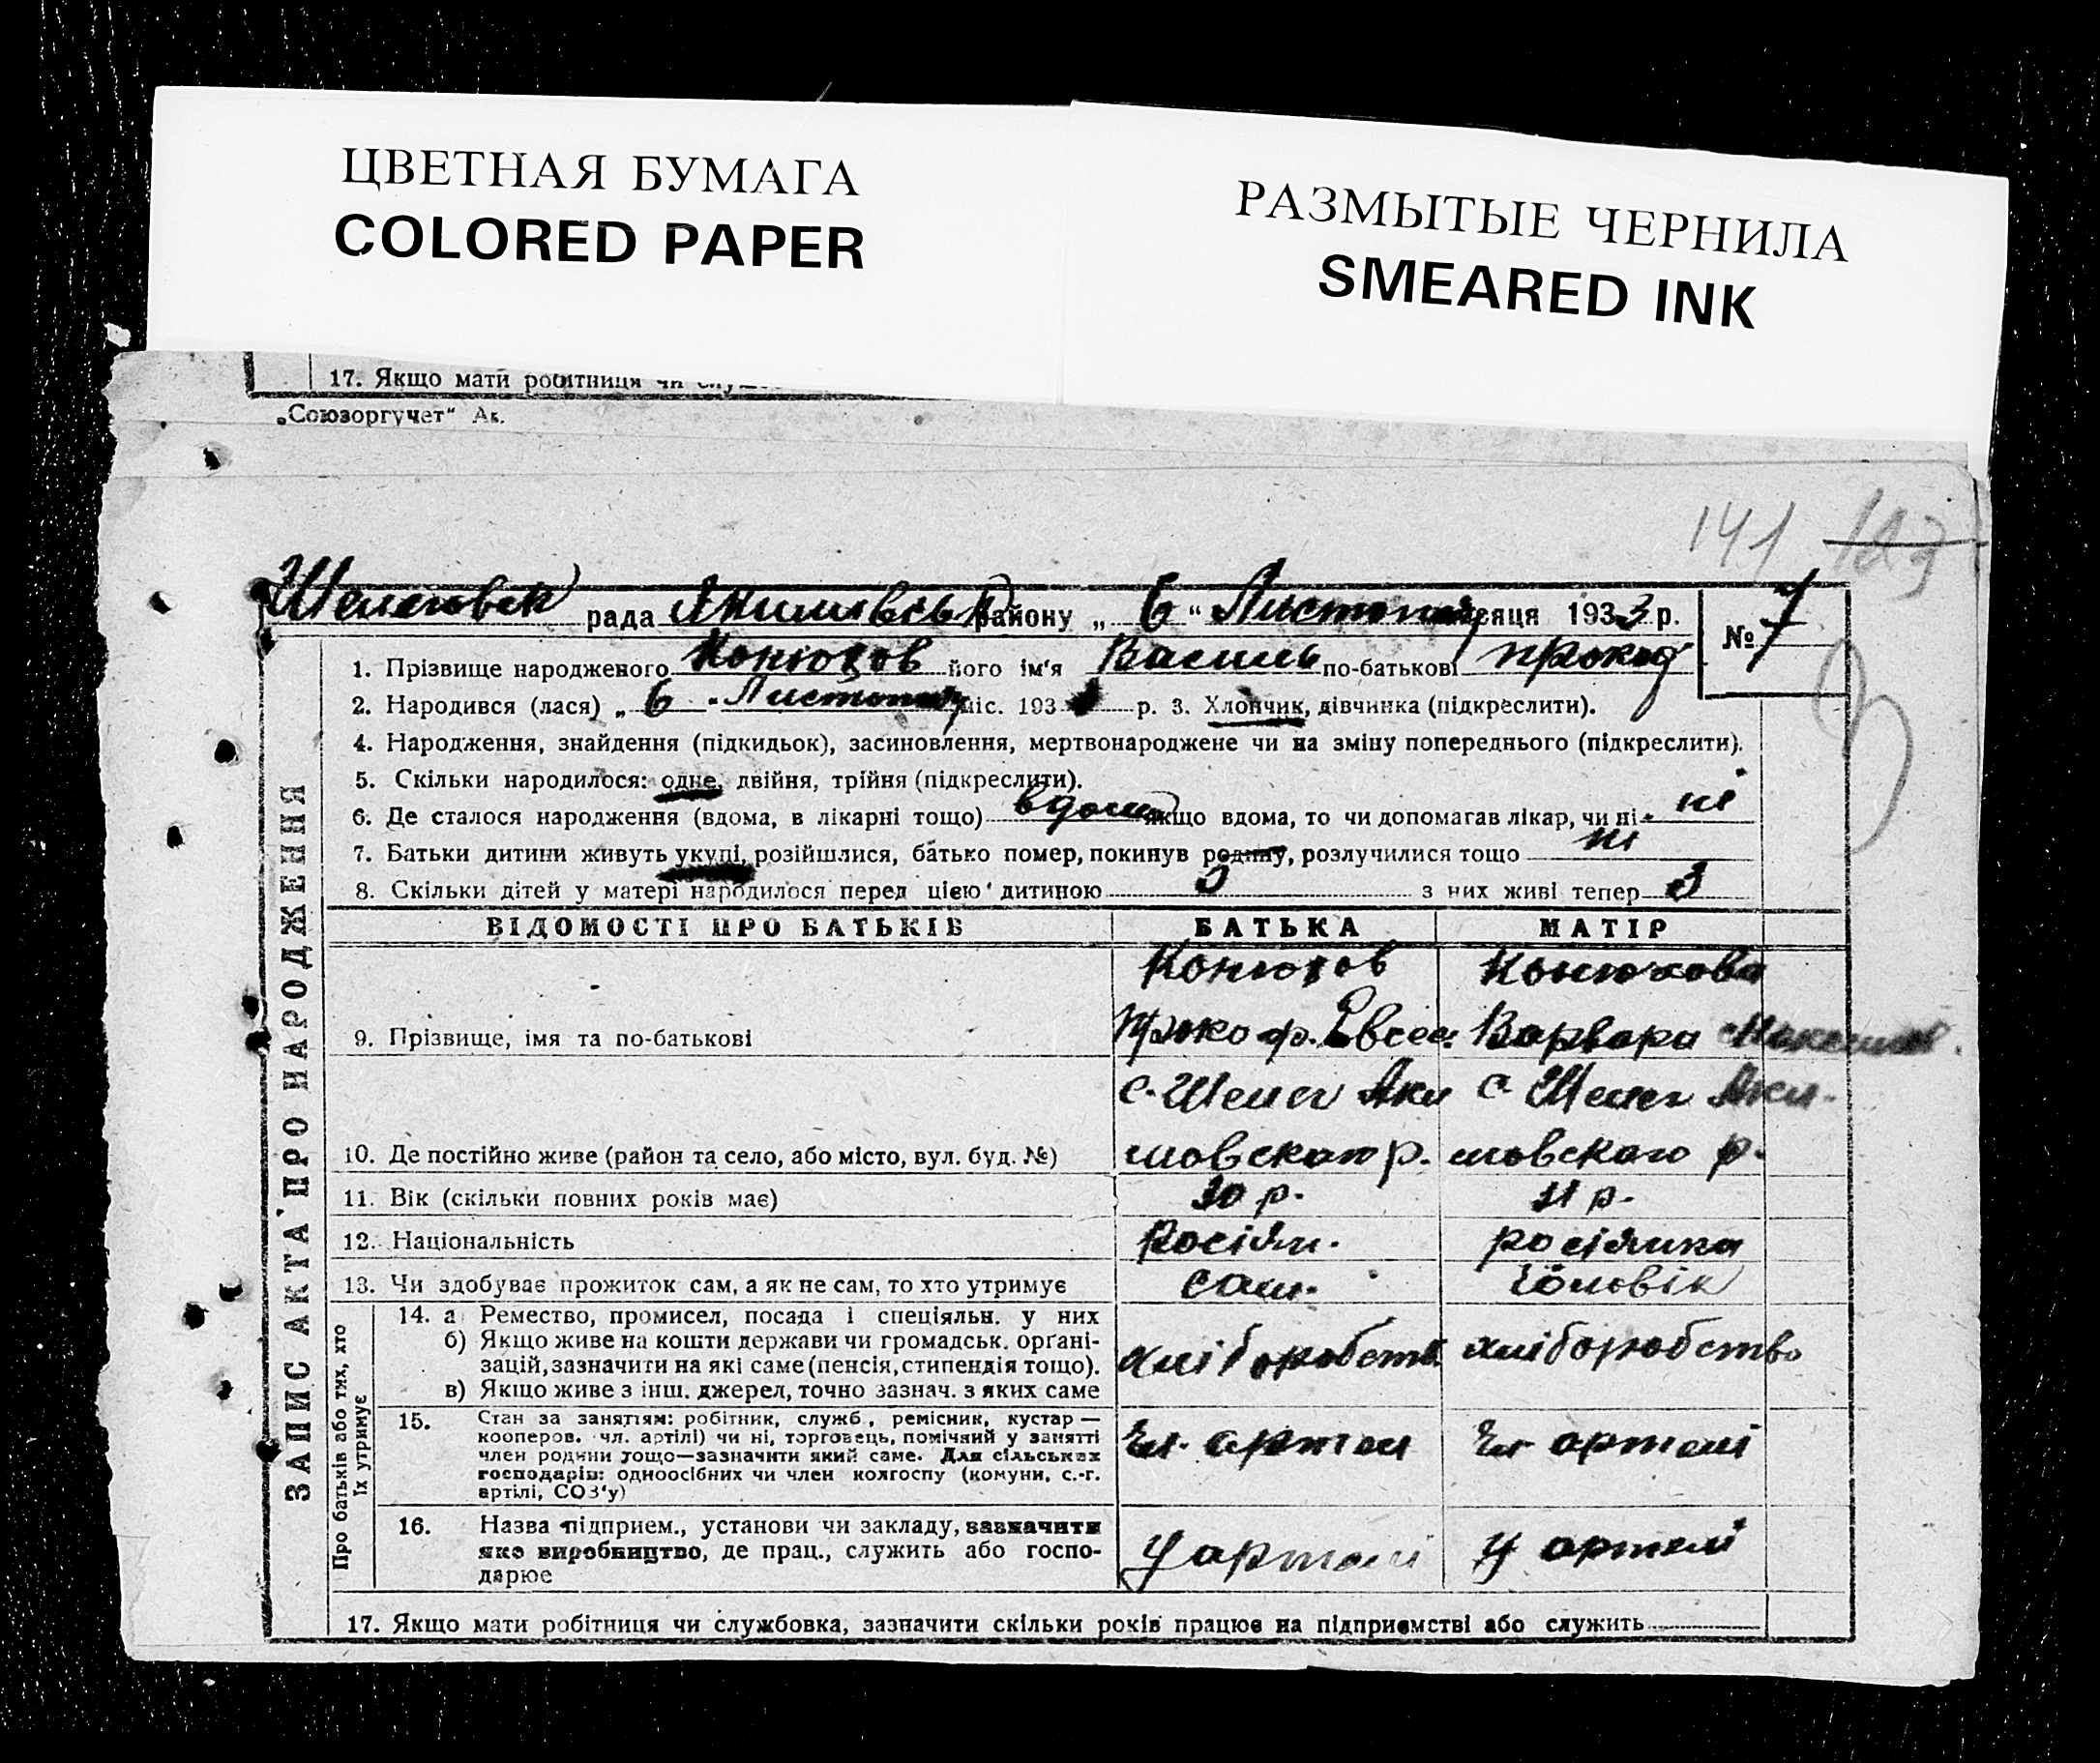 ЦВЕТНАЯ БУМАГА
COLORED PAPER
РАЗМЫТЫЕ ЧЕРНИЛА
SMEARED INK
17. Якщо мати робітниця чи
„Союзоргучет“ Ак.
141 123
рада району „ 6 “ Листопад місяця 1933 р. № 7
1. Прізвище народженого Конюхов його ім'я Василь по-батькові прокоф
2. Народився (лася) „ 6 “ Листопад міс. 193 р. 3. Хлопчик, дівчинка (підкреслити).
4. Народження, знайдення (підкидьок), засиновлення, мертвонароджене чи на зміну попереднього (підкреслити).
5. Скільки народилося: одне, двійня, трійня (підкреслити).
6. Де сталося народження (вдома, в лікарні тощо) вдома якщо вдома, то чи допомагав лікар, чи ні ні
7. Батьки дитини живуть укупі, розійшлися, батько помер, покинув родину, розлучилися тощо ні
8. Скільки дітей у матері народилося перед цією дитиною з них живі тепер 3
ЗАПИС АКТА ПРО НАРОДЖЕННЯ
ВІДОМОСТІ ПРО БАТЬКІВ БАТЬКА МАТІР
Конюхов Конюхова
9. Прізвище, імя та по-батькові Проко ф. Евсее. Варвара
с. Шелег Аки с. Шелег Аки-
10. Де постійно живе (район та село, або місто, вул. буд. №) мовского р. мовского р.
11. Вік (скільки повних років має) 30 р. 31 р.
12. Національність Росіян. росіянка
13. Чи здобуває прожиток сам, а як не сам, то хто утримує сам. чоловік
Про батьків або тих, хто
їх утримує
14. а Ремество, промисел, посада і спеціяльн. у них
б) Якщо живе на кошти держави чи громадськ. органі-
зацій, зазначити на які саме (пенсія, стипендія тощо).
в) Якщо живе з інш. джерел, точно зазнач. з яких саме
хліборобств хліборобство
15. Стан за заняттям: робітник, служб., ремісник, кустар —
кооперов. чл. артілі) чи ні, торговець, помічний у занятті
член родини тощо—зазначити який саме. Для сільських
господарів: одноосібних чи член колгоспу (комуни, с.-г.
артілі, СОЗ'у)
Чл. артелі Чл артелі
16. Назва підприєм., установи чи закладу, зазначити
яке виробництво, де прац., служить або госпо-
дарює
У артелі У артелі
17. Якщо мати робітниця чи службовка, зазначити скільки років працює на підприємстві або служить